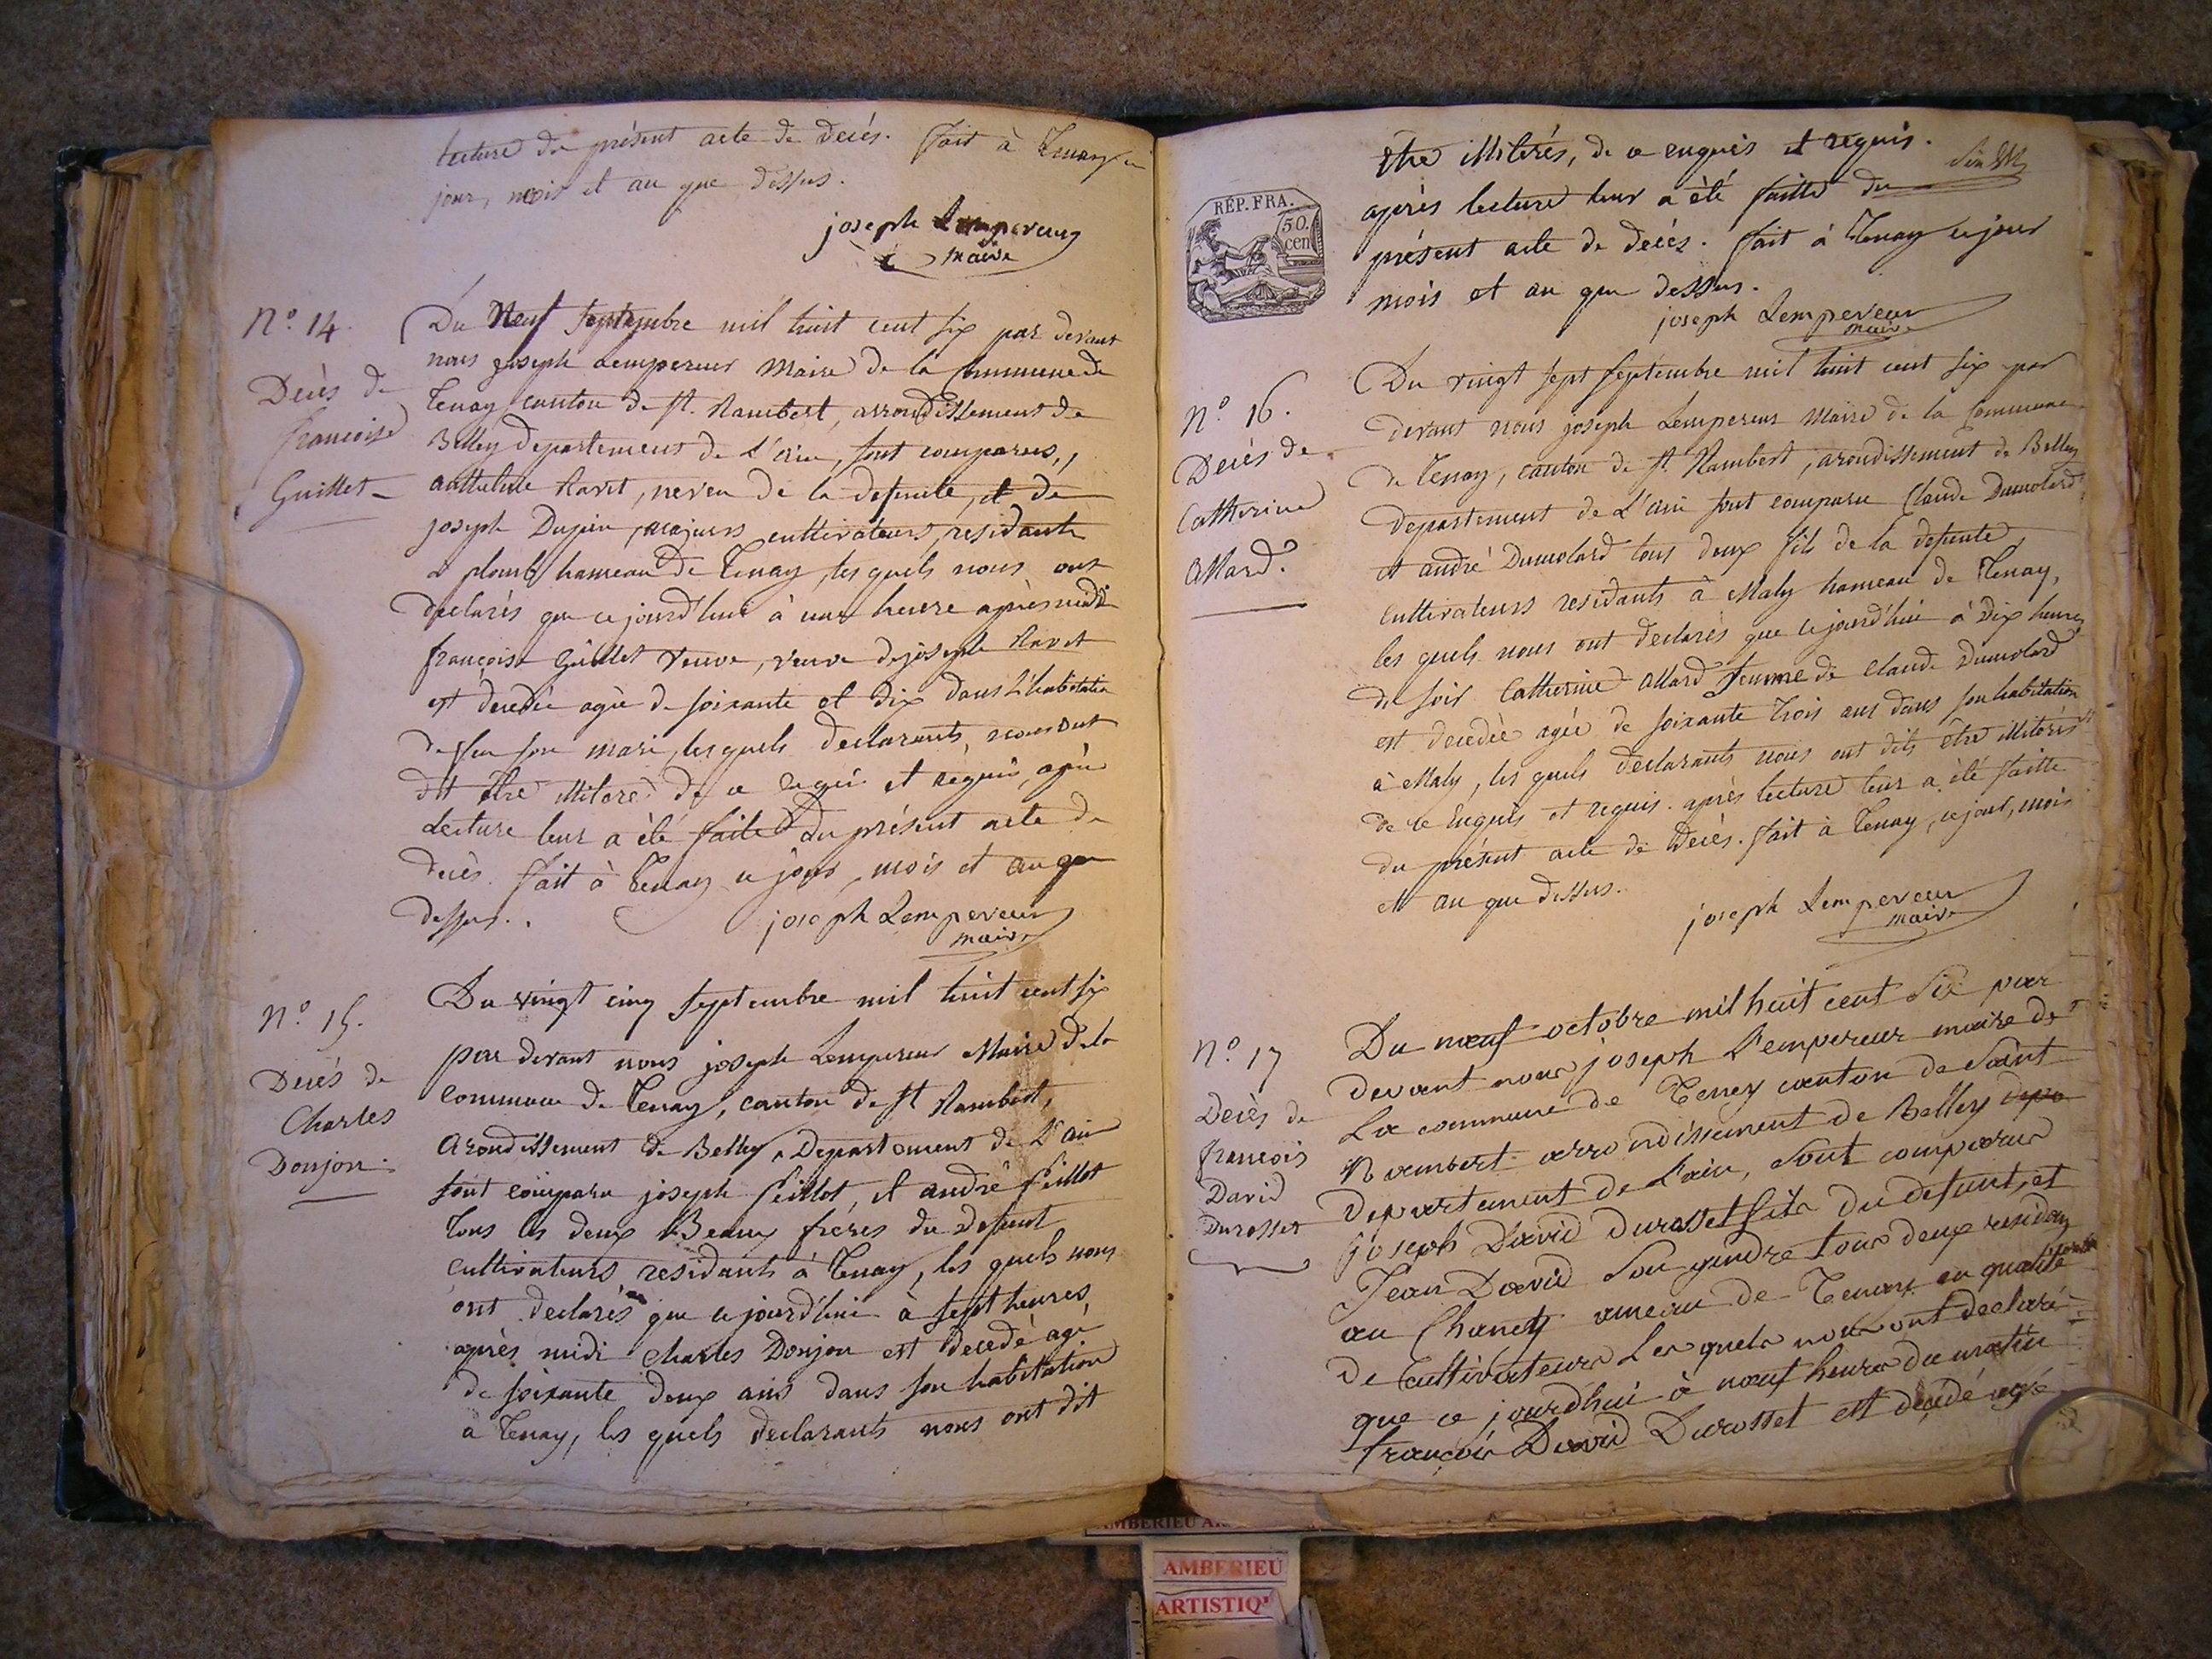 lecture du présent acte de decés. fait à Tenay ce
jour, mois et an que dessus.
joseph Lempereur
maire
N.º 14.
Decès de
francoise
Guillet
Du Neuf Septembre mil huit cent six par devant
nous joseph Lempereur Maire de la Commune de
Tenay canton de St. Rambert, arrondissement de
Belley departement de L'ain, sont comparus,
anthelme Ravet, neveu de la defunte, et de
joseph Dupin, majeurs cultivateurs, residants
a plomb hameau de Tenay, les quels nous ont
declarés que ce jourd'hui à une heure après midi
françoise Guillet veuve, veuve de joseph Ravet
est decedée agée de soixante et dix dans L'habitation
de feu son mari, les quels declarants, nous ont
dit être illiteré de ce enquis et requis, après
Lecture leur a été faite du présent acte de
decès. fait à Tenay ce jour, mois et an que
dessus.
joseph Lempereur
maire
N.º 15.
Decès de
Charles
Donjon
Du vingt cinq Septembre mil huit cent six
par devant nous joseph Lempereur Maire de la
commune de Tenay, canton de St Rambert,
arondissement de Belley, Departement de L'ain
sont comparu joseph feillot, et andré feillot
tous les deux Beaux frères du Defunt
cultivateurs residants à Tenay, les quels nous
ont declarés que ce jourd'hui à sept heures
après midi Charles Donjon est decedé agé
de soixante deux ans dans son habitation
à Tenay, les quels declarants nous ont dit
RÉP. FRA.
50.
cen
être illiterés, de ce enquis et requis.
après lecture leur a été faitte du
présent acte de decés. fait à Tenay ce jour
mois et an que dessus.
joseph Lempereur
maire
N.º 16.
Decès de
Catherine
Allard.
Du vingt sept septembre mil huit cent six par
devant nous joseph Lempereur Maire de la Commune
de Tenay, canton de St Rambert, arondissement de Belley
departement de L'ain sont comparu Claude Dumolard
et andré Dumolard tous deux fils de la defunte,
cultivateurs residants à Maly hameau de Tenay,
les quels nous ont declarés que ce jourd'hui à dix heures
du soir Catherine allard femme de Claude Dumolard
est decedée agée de soixante trois ans dans son habitation
à Maly, les quels declarants nous ont dits être illiterés
de ce Enquis et requis. après lecture leur a été faitte
du présent acte de Decès. fait à Tenay, ce jour, mois
et an que dessus.
joseph Lempereur
maire
N.º 17
Decès de
francois
David
Durosset
Du neuf octobre mil huit cent Six par
devant nous joseph Lempereur maire de
La commune de Tenay canton de Saint
Rambert arrondissement de Belley
Departement de Lain, Sont comparus
joseph David Durosset fils du defunt, et
Jean David Son gendre tous deux residents
au Chanety ameau de Tenay en qualité
de Cultivateurs Les quels nous ont declaré
que ce jourdhui à neuf heures du matin
francois David Durosset est decedé agé
AMBERIEU
AMBERIEU
ARTISTIQ